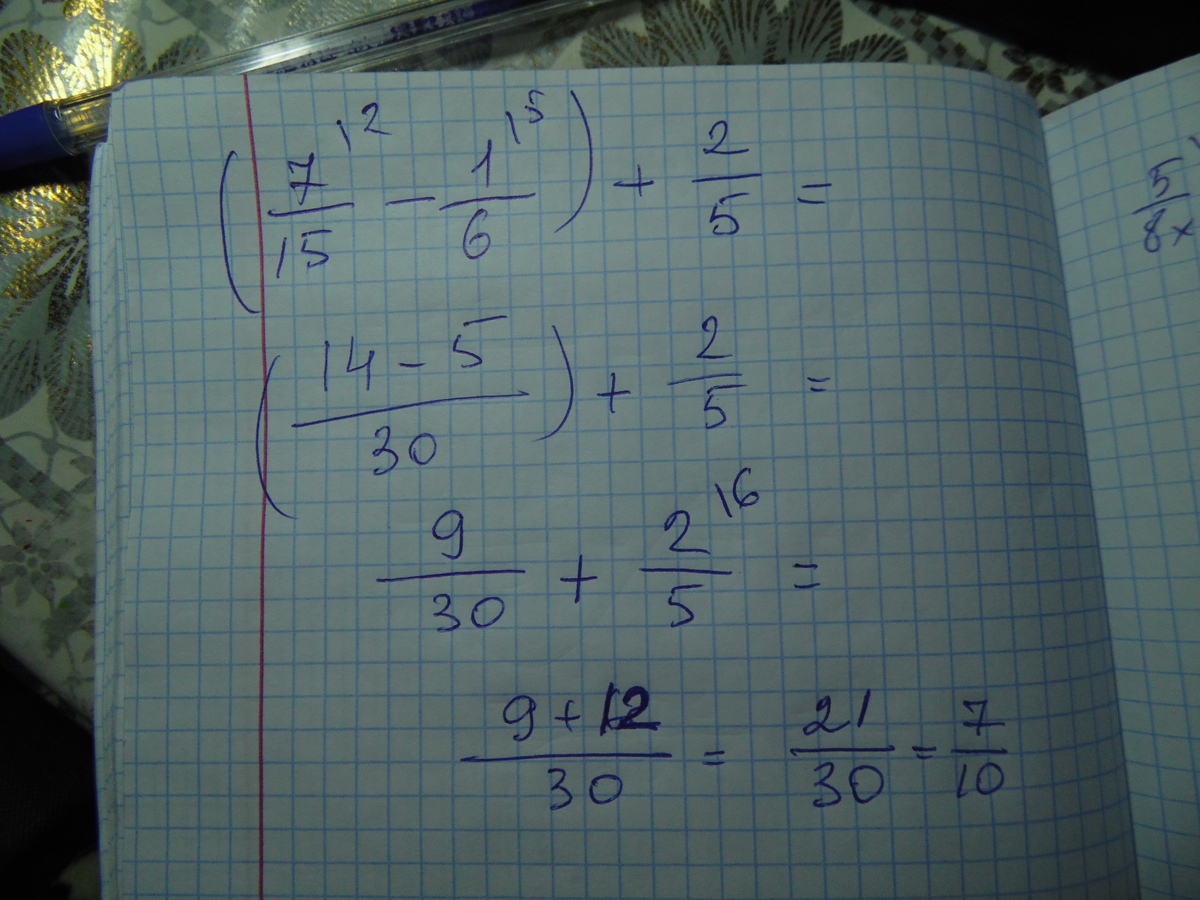 (7/15 \2 - 1/6 \5) + 2/5 =
(14 - 5 / 30) + 2/5 =
9/30 + 2/5 \6 =
9 + 12 / 30 = 21/30 = 7/10
5/8x